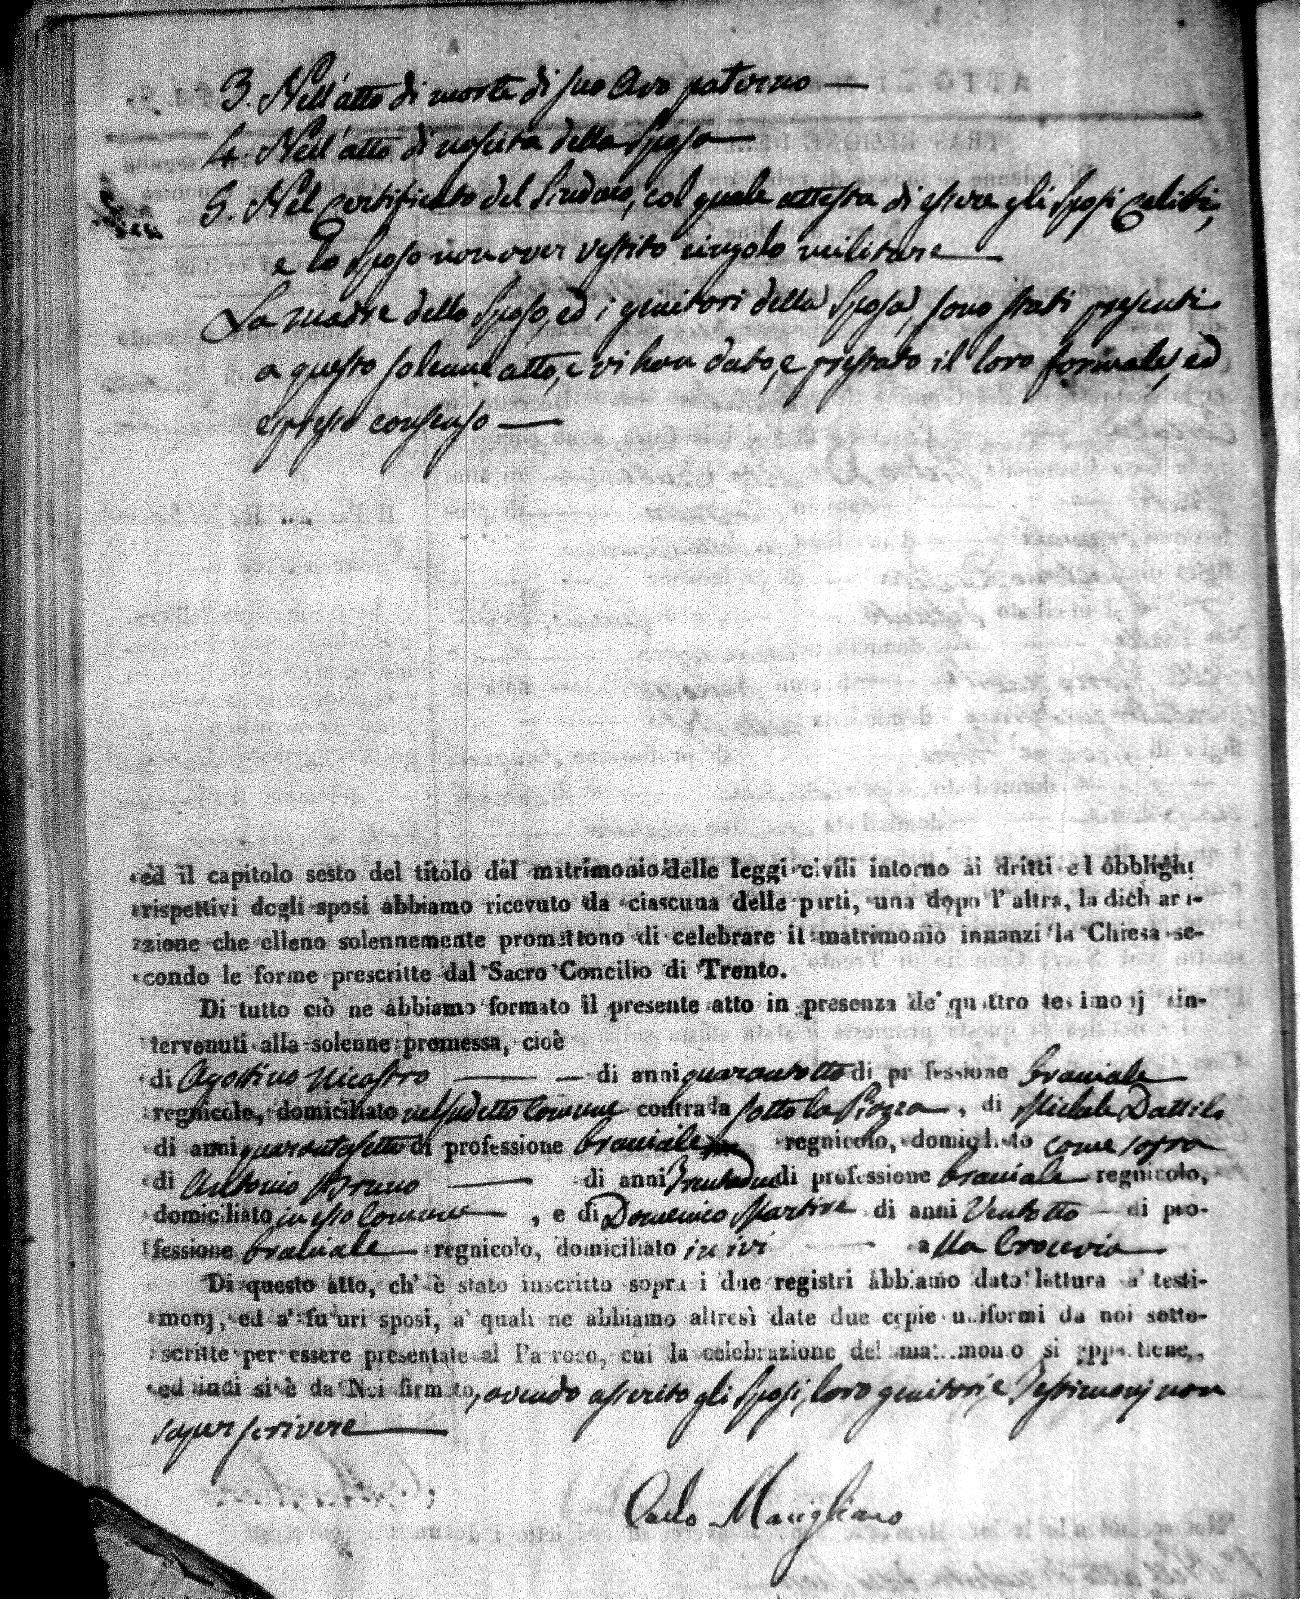 3. Nell'atto di morte di suo Avo paterno —
4. Nell'atto di nascita della Sposa —
5. Nel Certificato del Sindaco, col quale attesta di essere gli Sposi Celibi,
e lo Sposo non aver vestito cingolo militare —
La madre dello Sposo, ed i genitori della Sposa, sono stati presenti
a questo solenne atto, e vi han dato, e prestato il loro formale, ed
espresso consenso —
ed il capitolo sesto del titolo del matrimonio delle leggi civili intorno ai dritti e l obblighi
rispettivi degli sposi abbiamo ricevuto da ciascuna delle parti, una dopo l'altra, la dichiari-
zione che elleno solennemente promettono di celebrare il matrimonio innanzi la Chiesa se-
condo le forme prescritte dal Sacro Concilio di Trento.
Di tutto ciò ne abbiamo formato il presente atto in presenza de' quattro testimonj in-
tervenuti alla solenne promessa, cioè
di Agostino Nicastro — di anni quarantotto di professione braciale
regnicolo, domiciliato nel sudetto Comune contrada sotto la Piazza, di Michele Dattilo
di anni quarantasette di professione braciale regnicolo, domiciliato come sopra
di Antonio Bruno — di anni Trentadue di professione braciale regnicolo,
domiciliato in esso Comune, e di Domenico Martire di anni Ventotto di pro-
fessione braciale regnicolo, domiciliato in ivi — alla Crocevia
Di questo atto, ch' è stato inscritto sopra i due registri abbiamo dato lettura a' testi-
monj, ed a' futuri sposi, a' quali ne abbiamo altresì date due copie uniformi da noi sotto-
scritte per essere presentate al Parroco, cui la celebrazione del matrimonio si appartiene,
ed indi si è da Noi firmato, avendo asserito gli Sposi, loro genitori, e Testimonj non
saper scrivere —
Carlo Marigliano